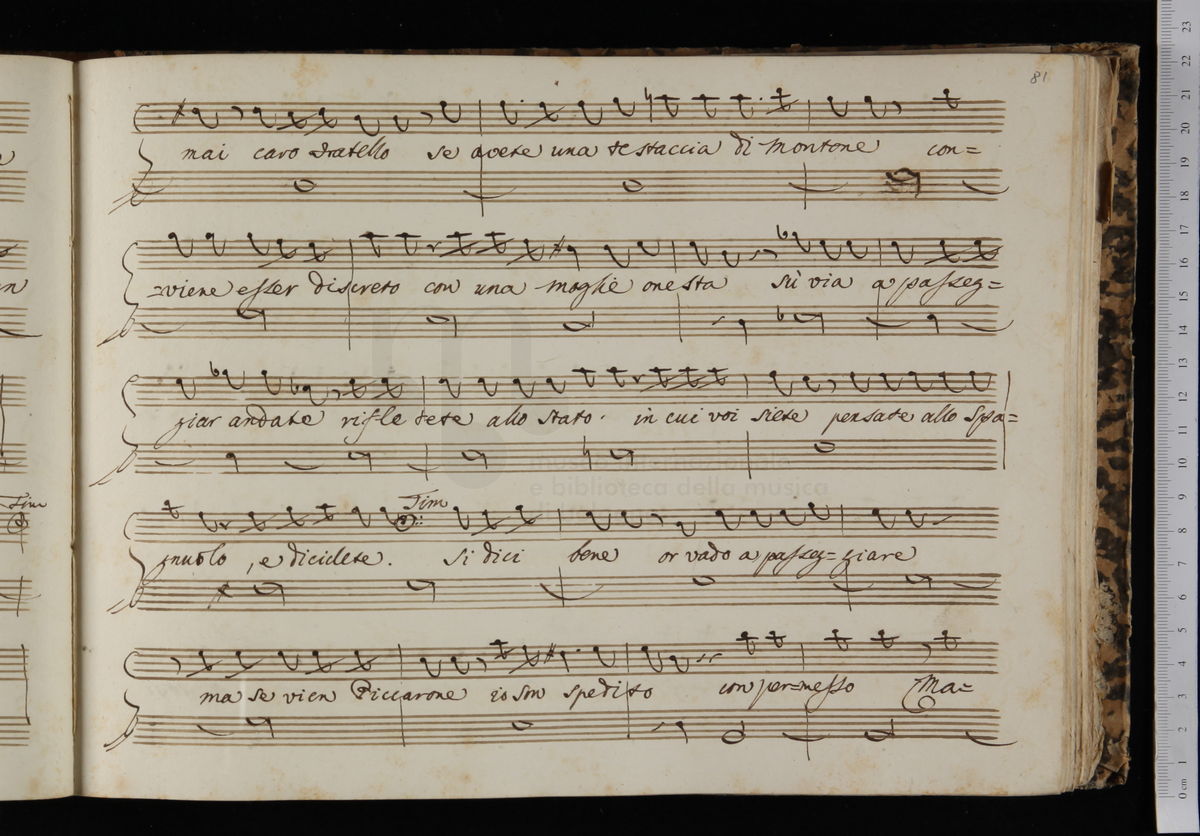 81
mai caro Fratello se avete una testaccia di Montone con=
=viene esser discreto con una moglie onesta sù via a passeg=
giar andate rifletete allo stato. in cui voi siete pensate allo spa=
Tim
gnuolo, e dicidete. Si dici bene or vado a passeg=giare
ma se vien Piccarone io son spedito con per=messo Ma=
museo internazionale
e biblioteca della musica